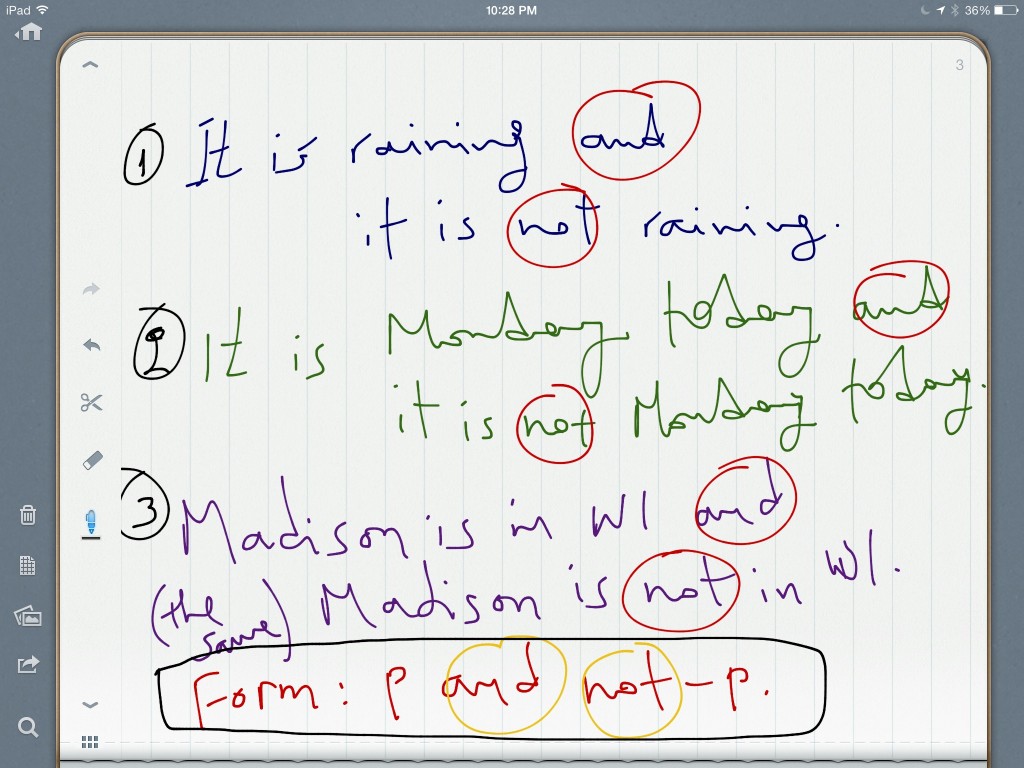 iPad
10:28 PM
36%
3
① It is raining and
it is not raining.
② It is Monday today and
it is not Monday today.
③ Madison is in WI and
(the same) Madison is not in WI.
Form: p and not-p.